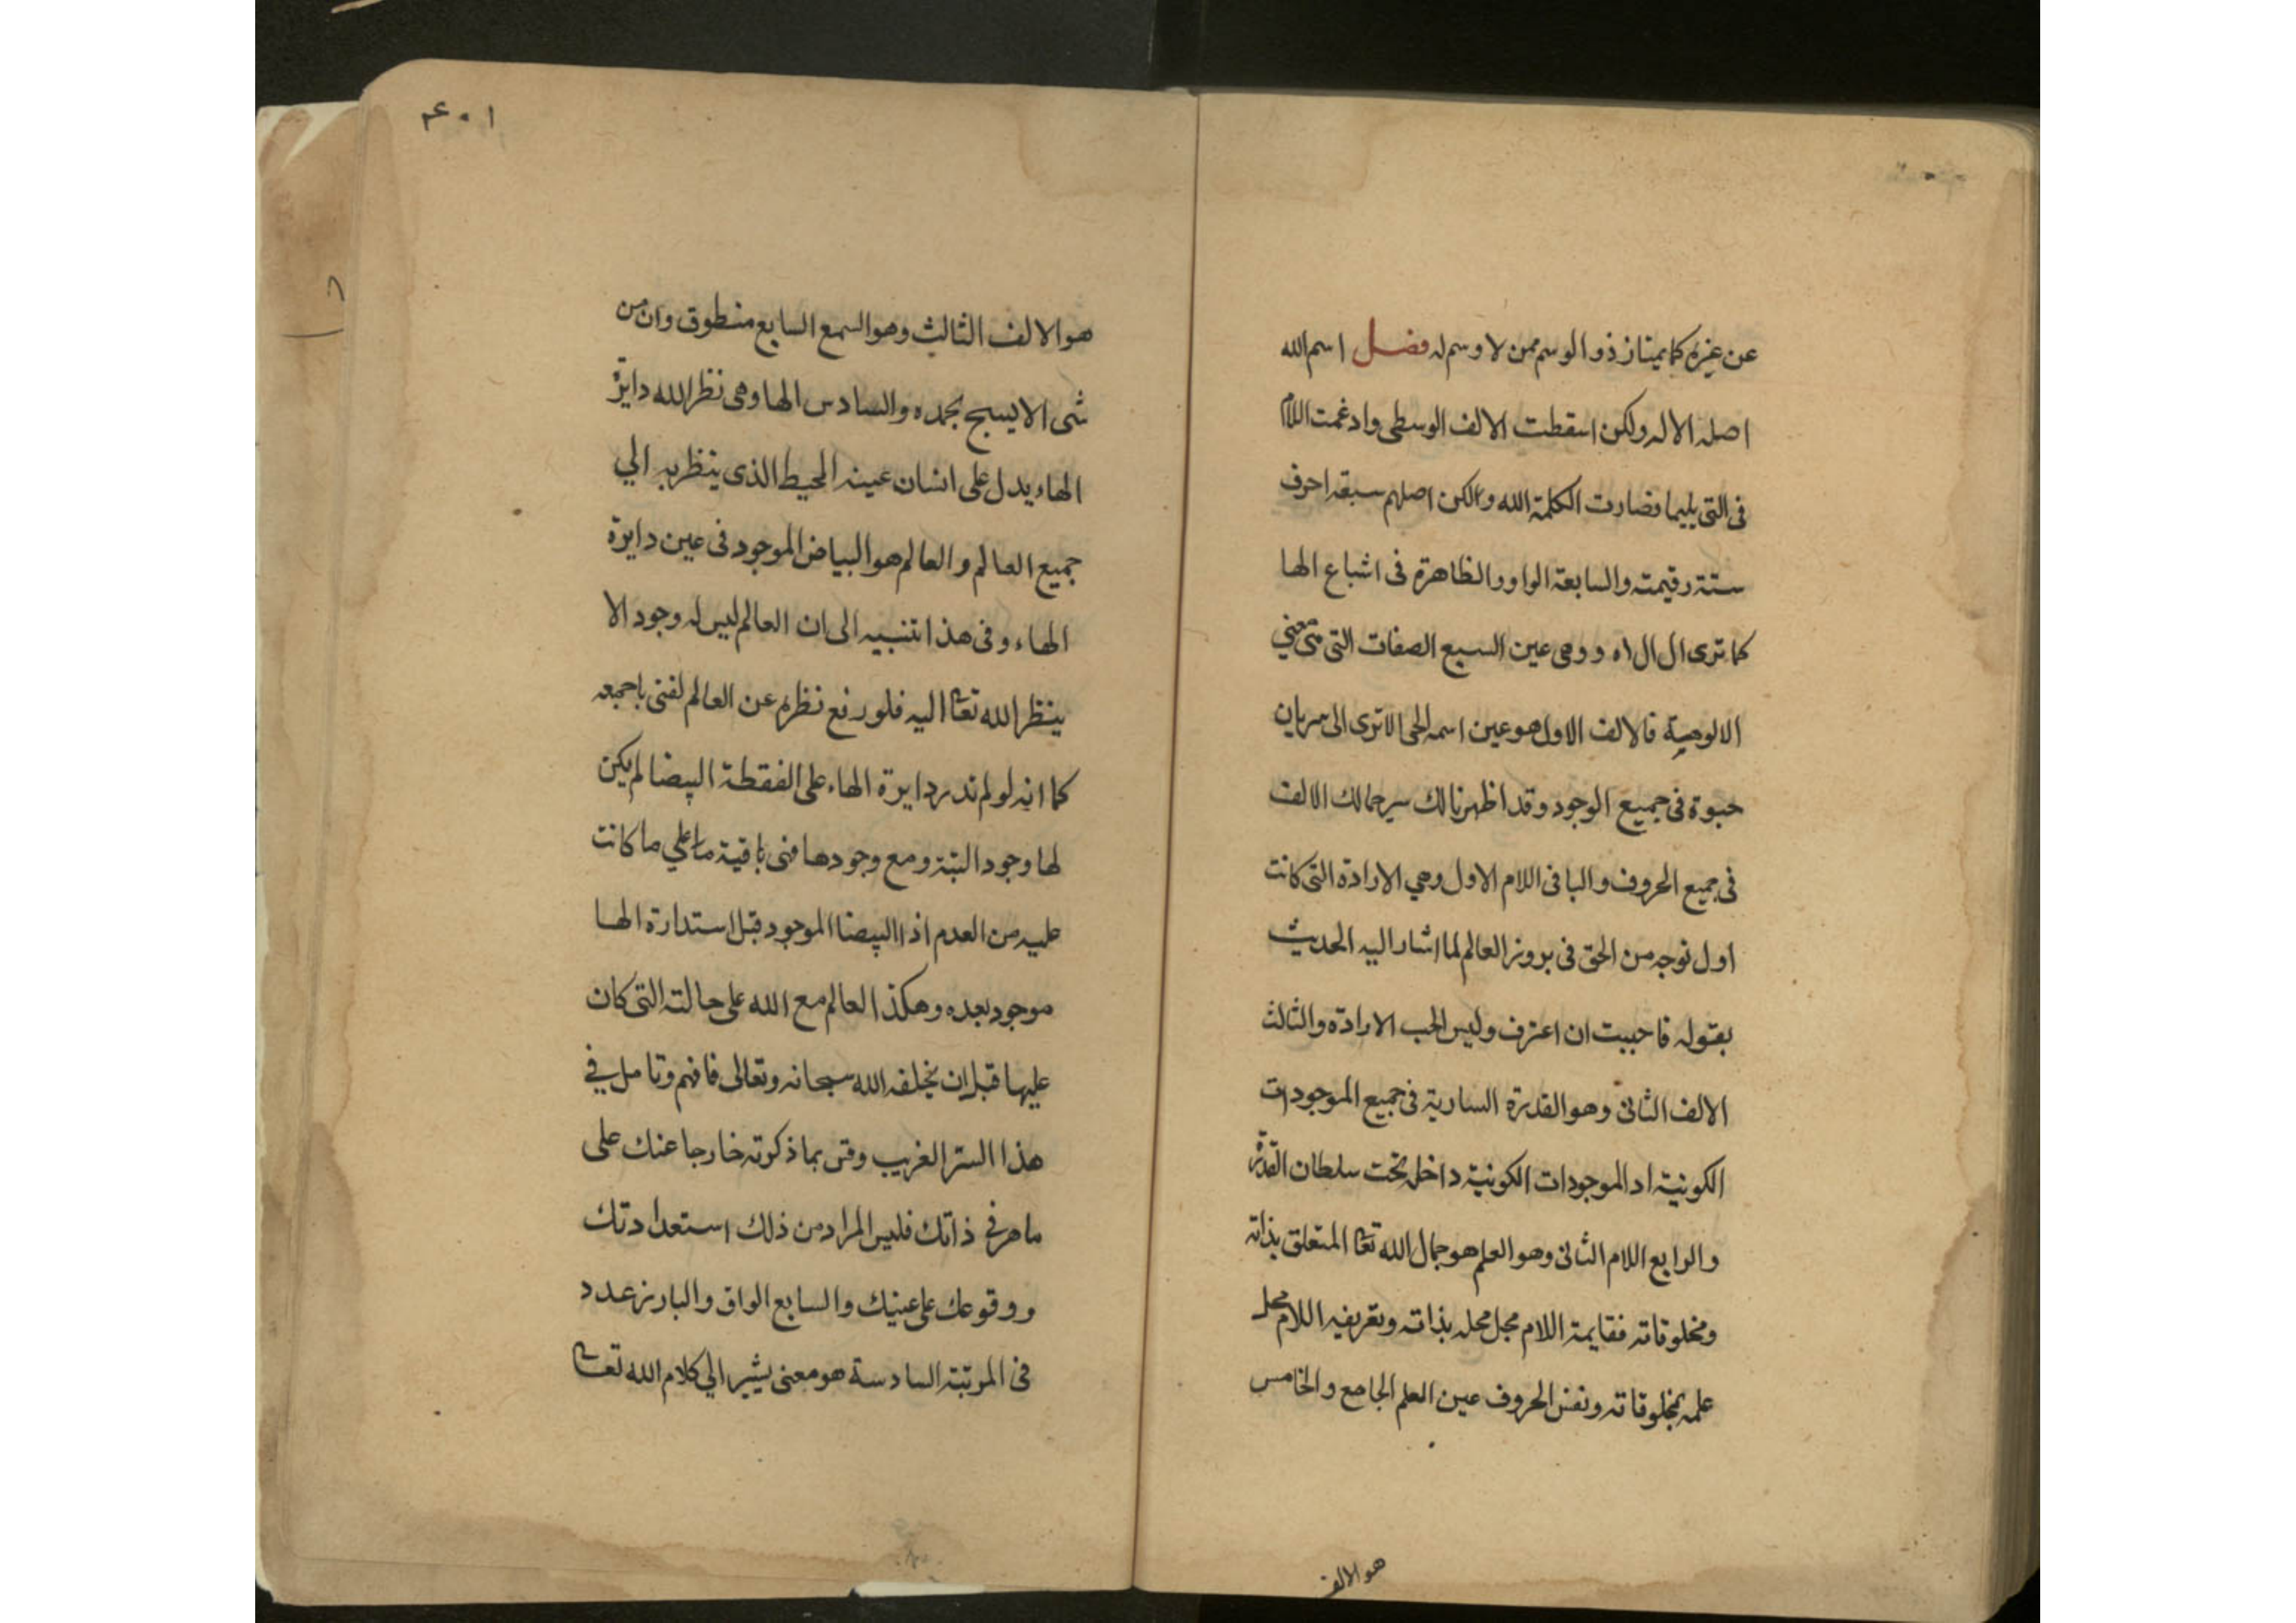 عن غيره كما يمتاز ذو الوسم ممن لا وسم له فصل اسم الله
اصله الاله ولكن اسقطت الالف الوسطى وادغمت اللام
فى التى يليها فصارت الكلمة الله ولكن اصلهم سبعة احرف
ستة رقيمته والسابعة الواو والظاهرة فى اشباع الها
كما ترى ال ال اه و وهى عين السبع الصفات التى هى معنى
الالوهية فالالف الاول هو عين اسمه الحى الا ترى الى سريان
حيوة فى جميع الوجود وقد اظهرنا لك سر حمالك الالف
فى جميع الحروف والباقى اللام الاول وهي الارادة التى كانت
اول توجه من الحق فى بروز العالم لما اشار اليه الحديث
بقوله فاحببت ان اعرف وليس الحب الا رادة والثالث
الالف الثانى وهو القدرة السارية فى جميع الموجودات
الكونية اد الموجودات الكونية داخل تحت سلطان القدرة
والرابع اللام الثانى وهو العلم هو جمال الله تعا المتعلق بذاته
ومخلوقاته فقايمة اللام محل محله بذاته وتعريفيه اللام محل
علمه بمخلوقاته ونفس الحروف عين العلم الجامع والخامس
هو الالف
١٠٤
هو الالف الثالث وهو السمع السابع منطوق وان من
شى الا يسبح بحمده والسادس الها وهى نظر الله دايرة
الهاء يدل على انسان عينه المحيط الذى ينظر به الي
جميع العالم والعالم هو البياض الموجود فى عين دايرة
الهاء وفى هذا تنبيه الى ان العالم ليس له وجود الا
ينظر الله تعا اليه فلو رفع نظره عن العالم لفنى باجمعه
كما انه لو لم تدر دايرة الهاء على الفقطة البيضا لم يكن
لها وجود البتة ومع وجودها فنى باقية ما علي ما كانت
عليه من العدم اذ البيضا الموجود قبل استدارة الها
موجود بعده وهكذ العالم مع الله على حالته التى كان
عليها قبل ان يخلقه الله سبحانه وتعالى فافهم وتامل في
هذا السر الغريب وقس بما ذكرته خارجا عنك على
ما هو فى ذاتك فليس المراد من ذلك استعدادتك
ووقوعك على عينك والسابع الواق والبارز عدد
فى المرتبة السادسة هو معنى يشير الي كلام الله تعا